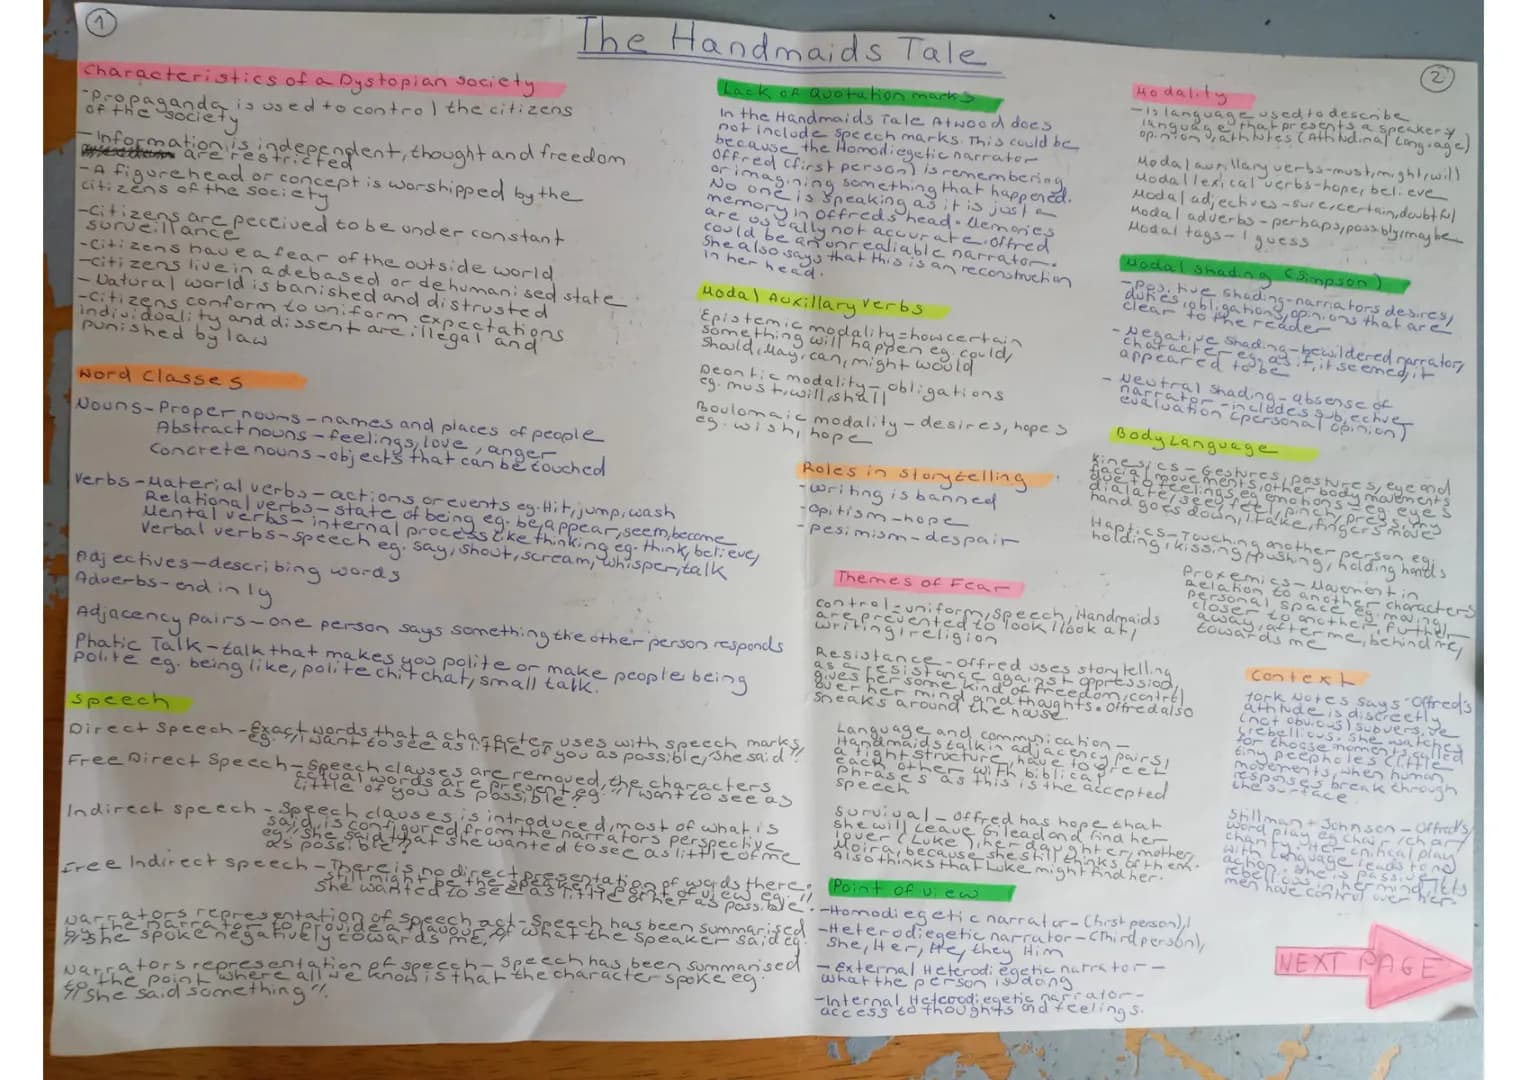 1
The Handmaids Tale
2
Characteristics of a Dystopian society
-Propaganda is used to control the citizens
of the society
-Information, is independent, thought and freedom
are restricted
-A figurehead or concept is worshipped by the
citizens of the society
-citizens are perceived to be under constant
surveillance
-citizens have a fear of the outside world
-citizens live in a debased or dehumanised state
-Natural world is banished and distrusted
-citizens conform to uniform expectations
individuality and dissent are illegal and
punished by law
Word Classes
Nouns-Proper nouns-names and places of people
Abstract nouns-feelings, love, anger
Concrete nouns-objects that can be touched
Verbs-Material verbs-actions or events eg. Hit, jump, wash
Relational verbs-state of being eg. be, appear, seem, become
Mental verbs-internal process like thinking eg. think, believe,
Verbal verbs-speech eg. say, shout, scream, whisper, talk
Adjectives-describing words
Adverbs-end in ly
Adjacency pairs-one person says something the other person responds
Phatic Talk-talk that makes you polite or make people being
polite eg. being like, polite chit chat, small talk.
Speech
Direct Speech-Exact words that a character uses with speech marks
eg. "I want to see as little of you as possible," she said"
Free Direct Speech-Speech clauses are removed, the characters
actual words are present eg. "I want to see as
little of you as possible."
Indirect speech-Speech clauses is introduced, most of what is
said is configured from the narrators perspective
eg "She said that she wanted to see as little of me
as possible"
Free Indirect speech-There is no direct presentation of words there.
Still might be the speakers point of view eg. "
She wanted to see as little of her as possible.
Narrators representation of speech act-Speech has been summarised
by the narrator to provide a flavour of what the speaker said eg.
"She spoke negatively towards me."
Narrators representation of speech-Speech has been summarised
to the point where all we know is that the character spoke eg.
"She said something".
Lack of Quotation marks
In the Handmaids Tale Atwood does
not include speech marks. This could be
because the Homodiegetic narrator
Offred (first person) is remembering
or imagining something that happened.
No one is speaking as it is just a
memory in offreds head. Memories
are usually not accurate. Offred
could be an unrealiable narrator.
She also says that this is an reconstruction
in her head.
Modal Auxillary verbs
Epistemic modality=how certain
something will happen eg. could,
should, May, can, might would
Deontic modality-obligations
eg. must, will, shall
Boulomaic modality-desires, hopes
eg. wish, hope
Roles in storytelling
-writing is banned
-opitism-hope
-pesimism-despair
Themes of Fear
control-uniform, speech, Handmaids
are prevented to look/look at,
writing, religion
Resistance-Offred uses storytelling
as a resistance against oppression,
gives her some kind of freedom, control
over her mind and thoughts. Offred also
sneaks around the house.
Language and communication-
Handmaids talk in adjacency pairs,
a tight structure, have to greet
each other with biblical
phrases as this is the accepted
speech
Survival-Offred has hope that
she will leave Gilead and find her
lover (Luke), her daughter, mother,
Moira, because she still thinks of them.
Also thinks that Luke might find her.
Point of view
-Homodiegetic narrator-(first person), I
-Heterodiegetic narrator-(Third person),
She, Her, He, they Him
-External Heterodiegetic narrator-
what the person is doing
-Internal Heterodiegetic narrator-
access to thoughts and feelings.
Modality
-Is language used to describe
language that presents a speakers
opinion, attitutes (Attitudinal Language)
Modal auxillary verbs-must, might, will
Modal lexical verbs-hope, believe
Modal adjectives-sure, certain, doubtful
Modal adverbs-perhaps, possibly, maybe
Modal tags-I guess
Modal shading (Simpson)
-Positive shading-narrators desires,
duties, obligations, opinions that are
clear to the reader
-Negative Shading-bewildered narrator,
character eg, as if, it seemed, it
appeared to be
-Neutral Shading-absense of
narrator-includes subjective
evaluation (personal opinion)
Body Language
Kinesics-Gestures, postures, eye and
facial movements, other body movements
due to feelings, eg emotions eg. eyes
dialate, see, feel, pinch, press, my
hand goes down, I fake, fingers move
Haptics-Touching another person eg,
holding, kissing, pushing, holding hands
Proxemics-Movement in
Relation to another characters
personal space eg. moving
closer to another, further
away, after me, behind me,
towards me
Context
York Notes says "Offred's
attitude is discreetly
(not obvious) subversive
(rebellious). She watched
for those moments, and
tiny peepholes (little
movements, when human
responses break through
the surface
Stillman + Johnson-Offreds
word play eg chair, (chair/
charity. Her critical play
with language leads to no
action. She is passive,
rebellious in her mind, lets
men have control over her.
NEXT PAGE